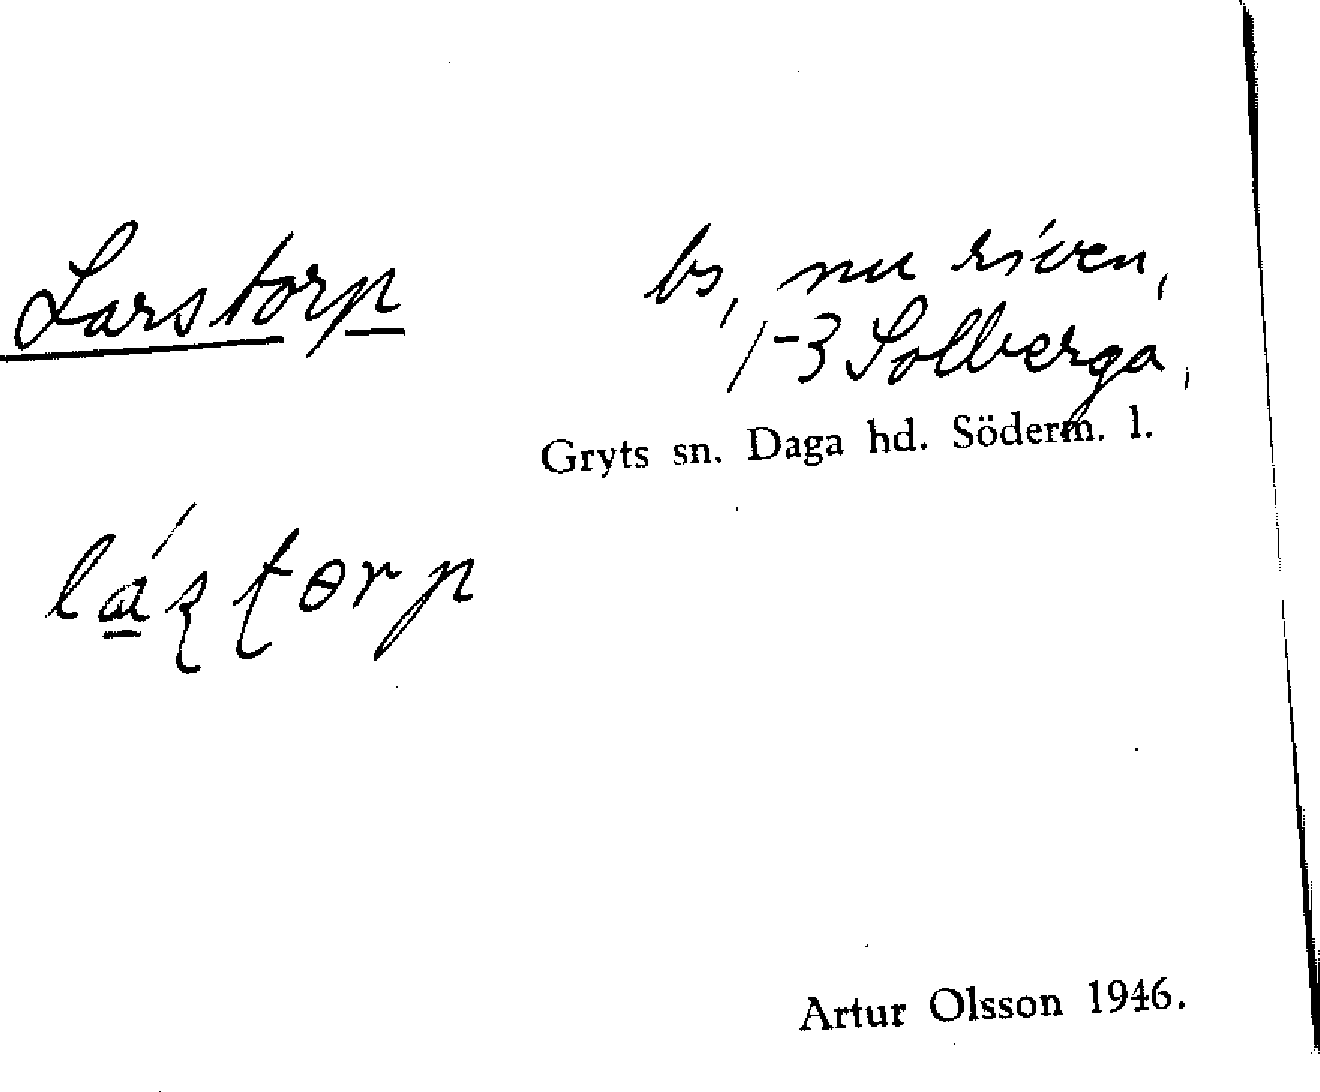 Larstorp
bs, nu riven,
1-3 Solberga,
Gryts sn. Daga hd. Söderm. l.
láʂʈɵrp
Artur Olsson 1946.